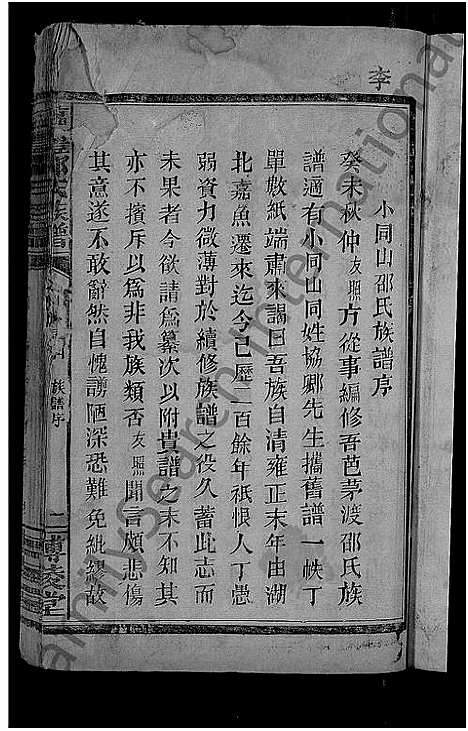 李
小同山邵氏族譜序
癸未秋仲友照方從事編修吾芭茅渡邵氏族
譜適有小同山同姓協卿先生攜舊譜一帙丁
單數紙端肅來謁曰吾族自清雍正末年由湖
北嘉魚遷來迄今已歷二百餘年祇恨人丁
弱資力微薄對於續修族譜之役久蓄此志而
未果者今欲請爲纂次以附貴譜之末不知其
亦不擯斥以爲非我族類否友照聞言頗悲傷
其意遂不敢辭然自愧謭陋深恐難免紕繆故
邵氏族譜
族譜序
二
博泰堂
FamilySearch International